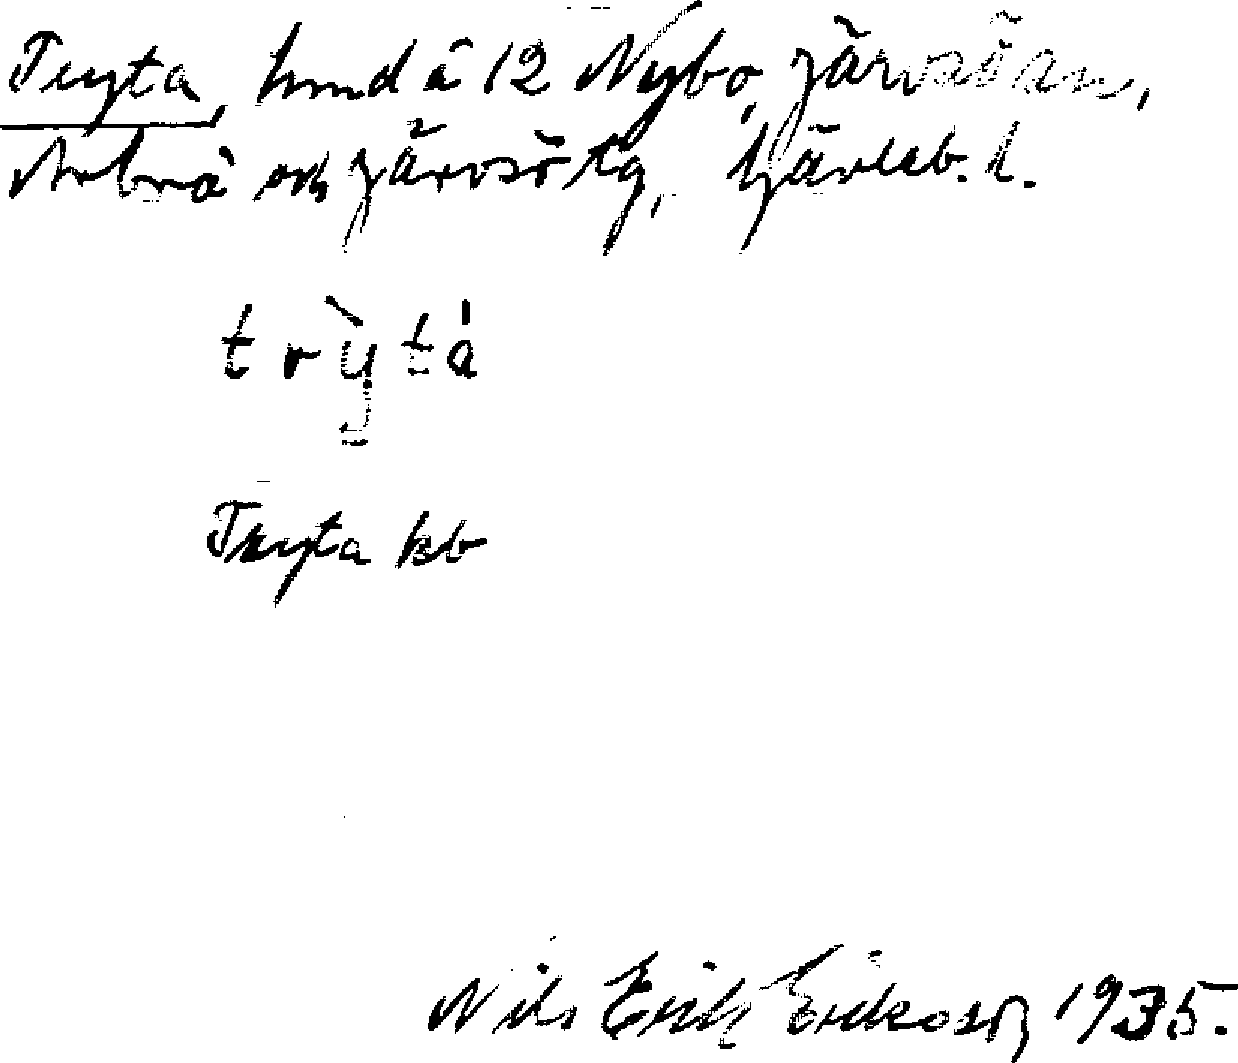 Tryta, hmd å 12 Nybo, Järvsö sn,
Arbrå och Järvsö tg, Gävleb. l.
trỳtá
Tryta kb
Nils Erik Eriksson 1935.